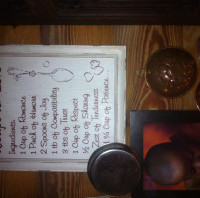 Ingredients:
1 Cup of Romance
1 Pack of Humor
2 Spoons of Joy
1 lb of Compatibility
3 tbs of Trust
1 Cup of Respect
½ Cup of Sharing
2 Oz of Tenderness
1½ Cup of Patience